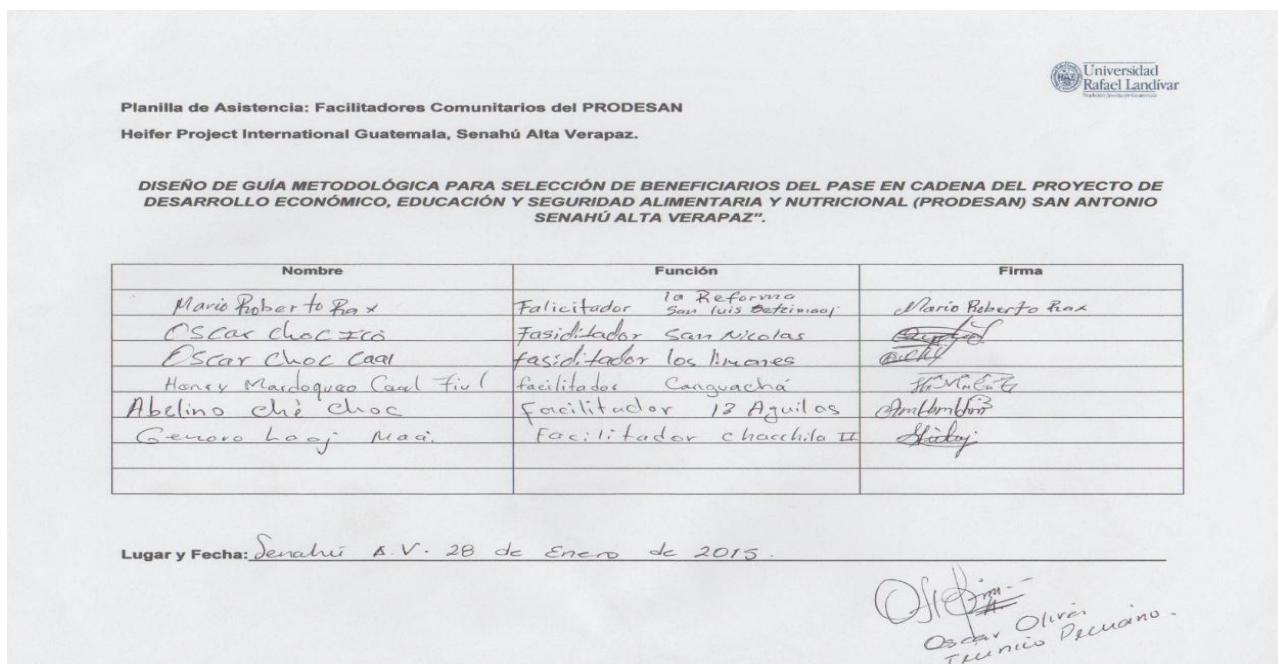 Universidad
Rafael Landívar
Planilla de Asistencia: Facilitadores Comunitarios del PRODESAN
Heifer Project International Guatemala, Senahú Alta Verapaz.
DISEÑO DE GUÍA METODOLÓGICA PARA SELECCIÓN DE BENEFICIARIOS DEL PASE EN CADENA DEL PROYECTO DE
DESARROLLO ECONÓMICO, EDUCACIÓN Y SEGURIDAD ALIMENTARIA Y NUTRICIONAL (PRODESAN) SAN ANTONIO
SENAHÚ ALTA VERAPAZ”.
Nombre Función Firma
Mario Roberto Rax Falicitador la Reforma San luis Mario Roberto Rax
Oscar Choc Icó Fasiditador San Nicolas
Oscar Choc Caal fasiditador los limones
Henry Mardoqueo Caal Fiul facilitador Canguachá
Abelino ché choc Facilitador 13 Aguilas
Genaro Looj Maa. Facilitador chacchila II
Lugar y Fecha: Senahú A.V. 28 de Enero de 2015.
Oscar Oliva
Pecuaino.